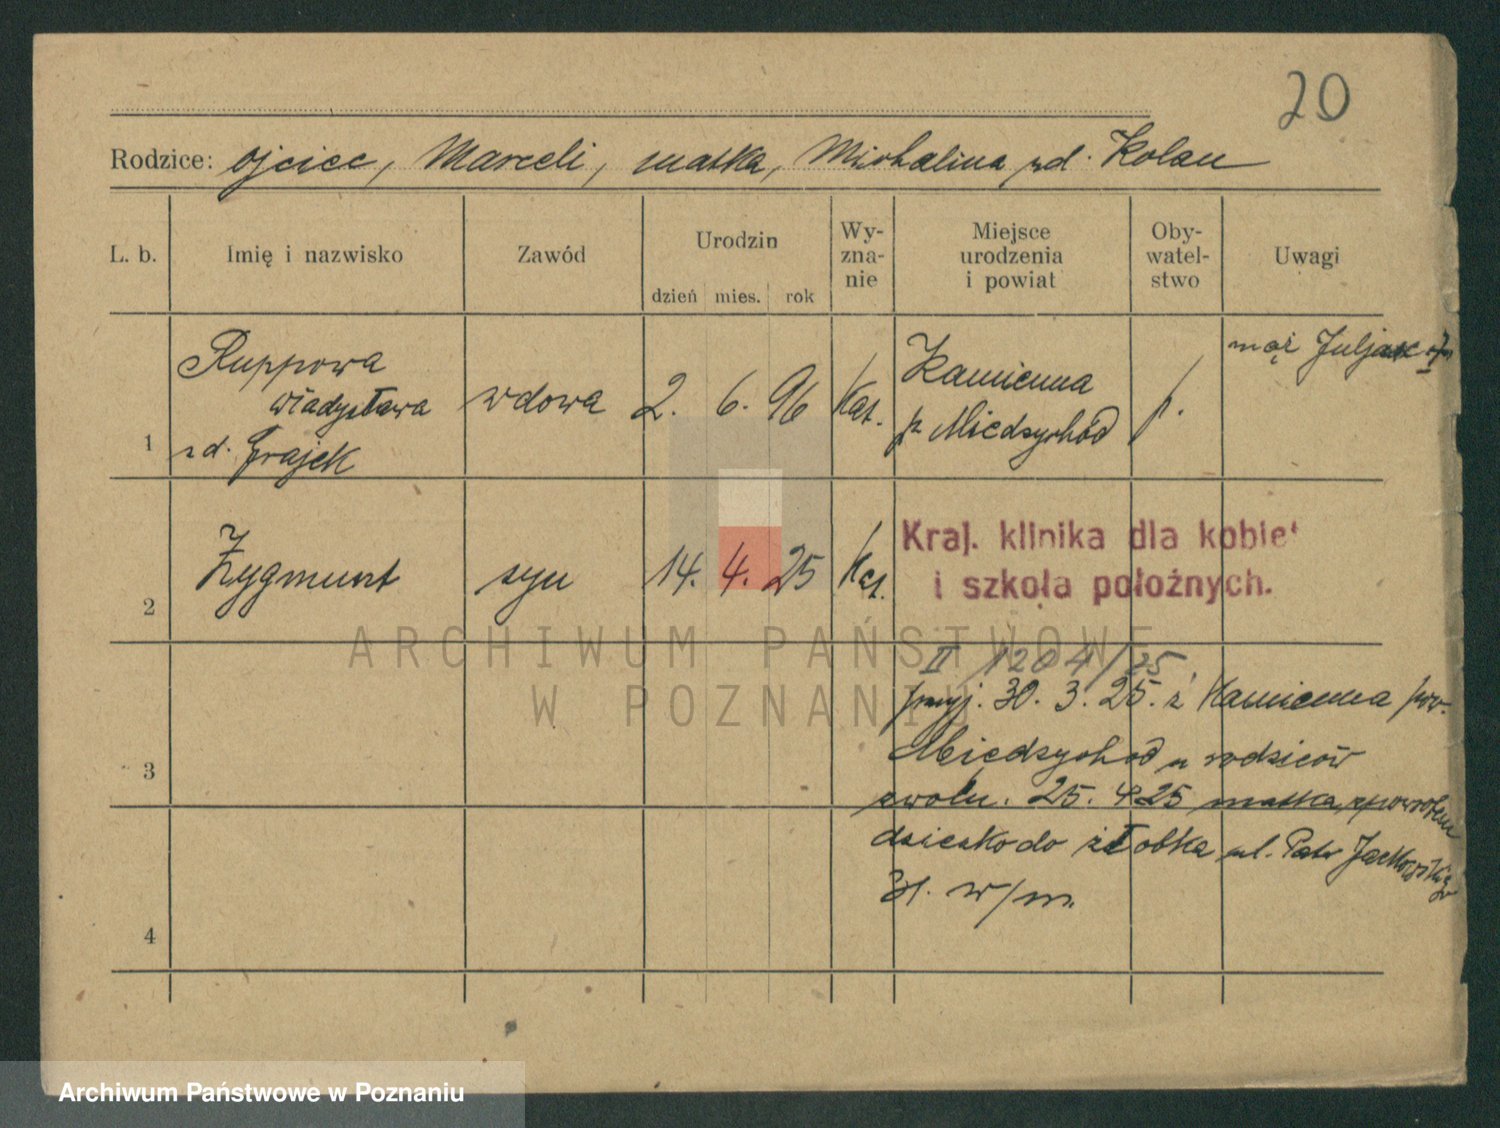 20
Rodzice: ojciec, Marceli, matka, Michalina zd. Kolan
L. b. Imię i nazwisko Zawód Urodzin dzień mies. rok Wy-zna-nie Miejsce urodzenia i powiat Oby-watel-stwo Uwagi
1 Ruppowa Władysława zd. Grajek wdowa 2. 6. 96 Kat. Kamienna p. Miedzychód p. mąż Juljan
2 Zygmunt syn 14. 4. 25 Kat. Kraj. klinika dla kobiet
i szkoła położnych.
II 1204/25
przyj. 30. 3. 25. z Kamienna pow.
3 Miedzychód u rodziców
zwoln. 25. 4 25 matka, zpowrotem
dziecko do żłobka ul. Patr. Jackowskiego
31. w/m.
4
ARCHIWUM PAŃSTWOWE
W POZNANIU
Archiwum Państwowe w Poznaniu